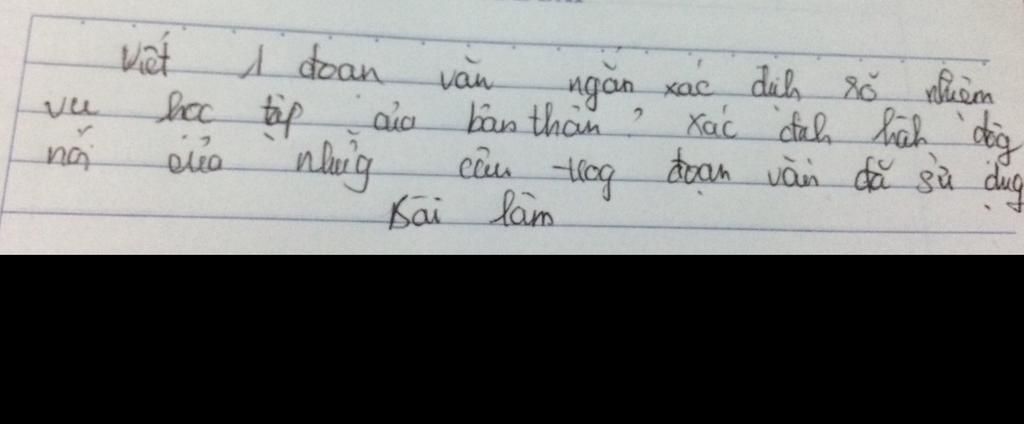 Viết 1 đoan văn ngắn xác dih rõ nhiệm
vu học tập của bản thân? Xác đinh hàh độg
nói của nhữg câu trog đoạn văn đã sử dụg
Bài làm